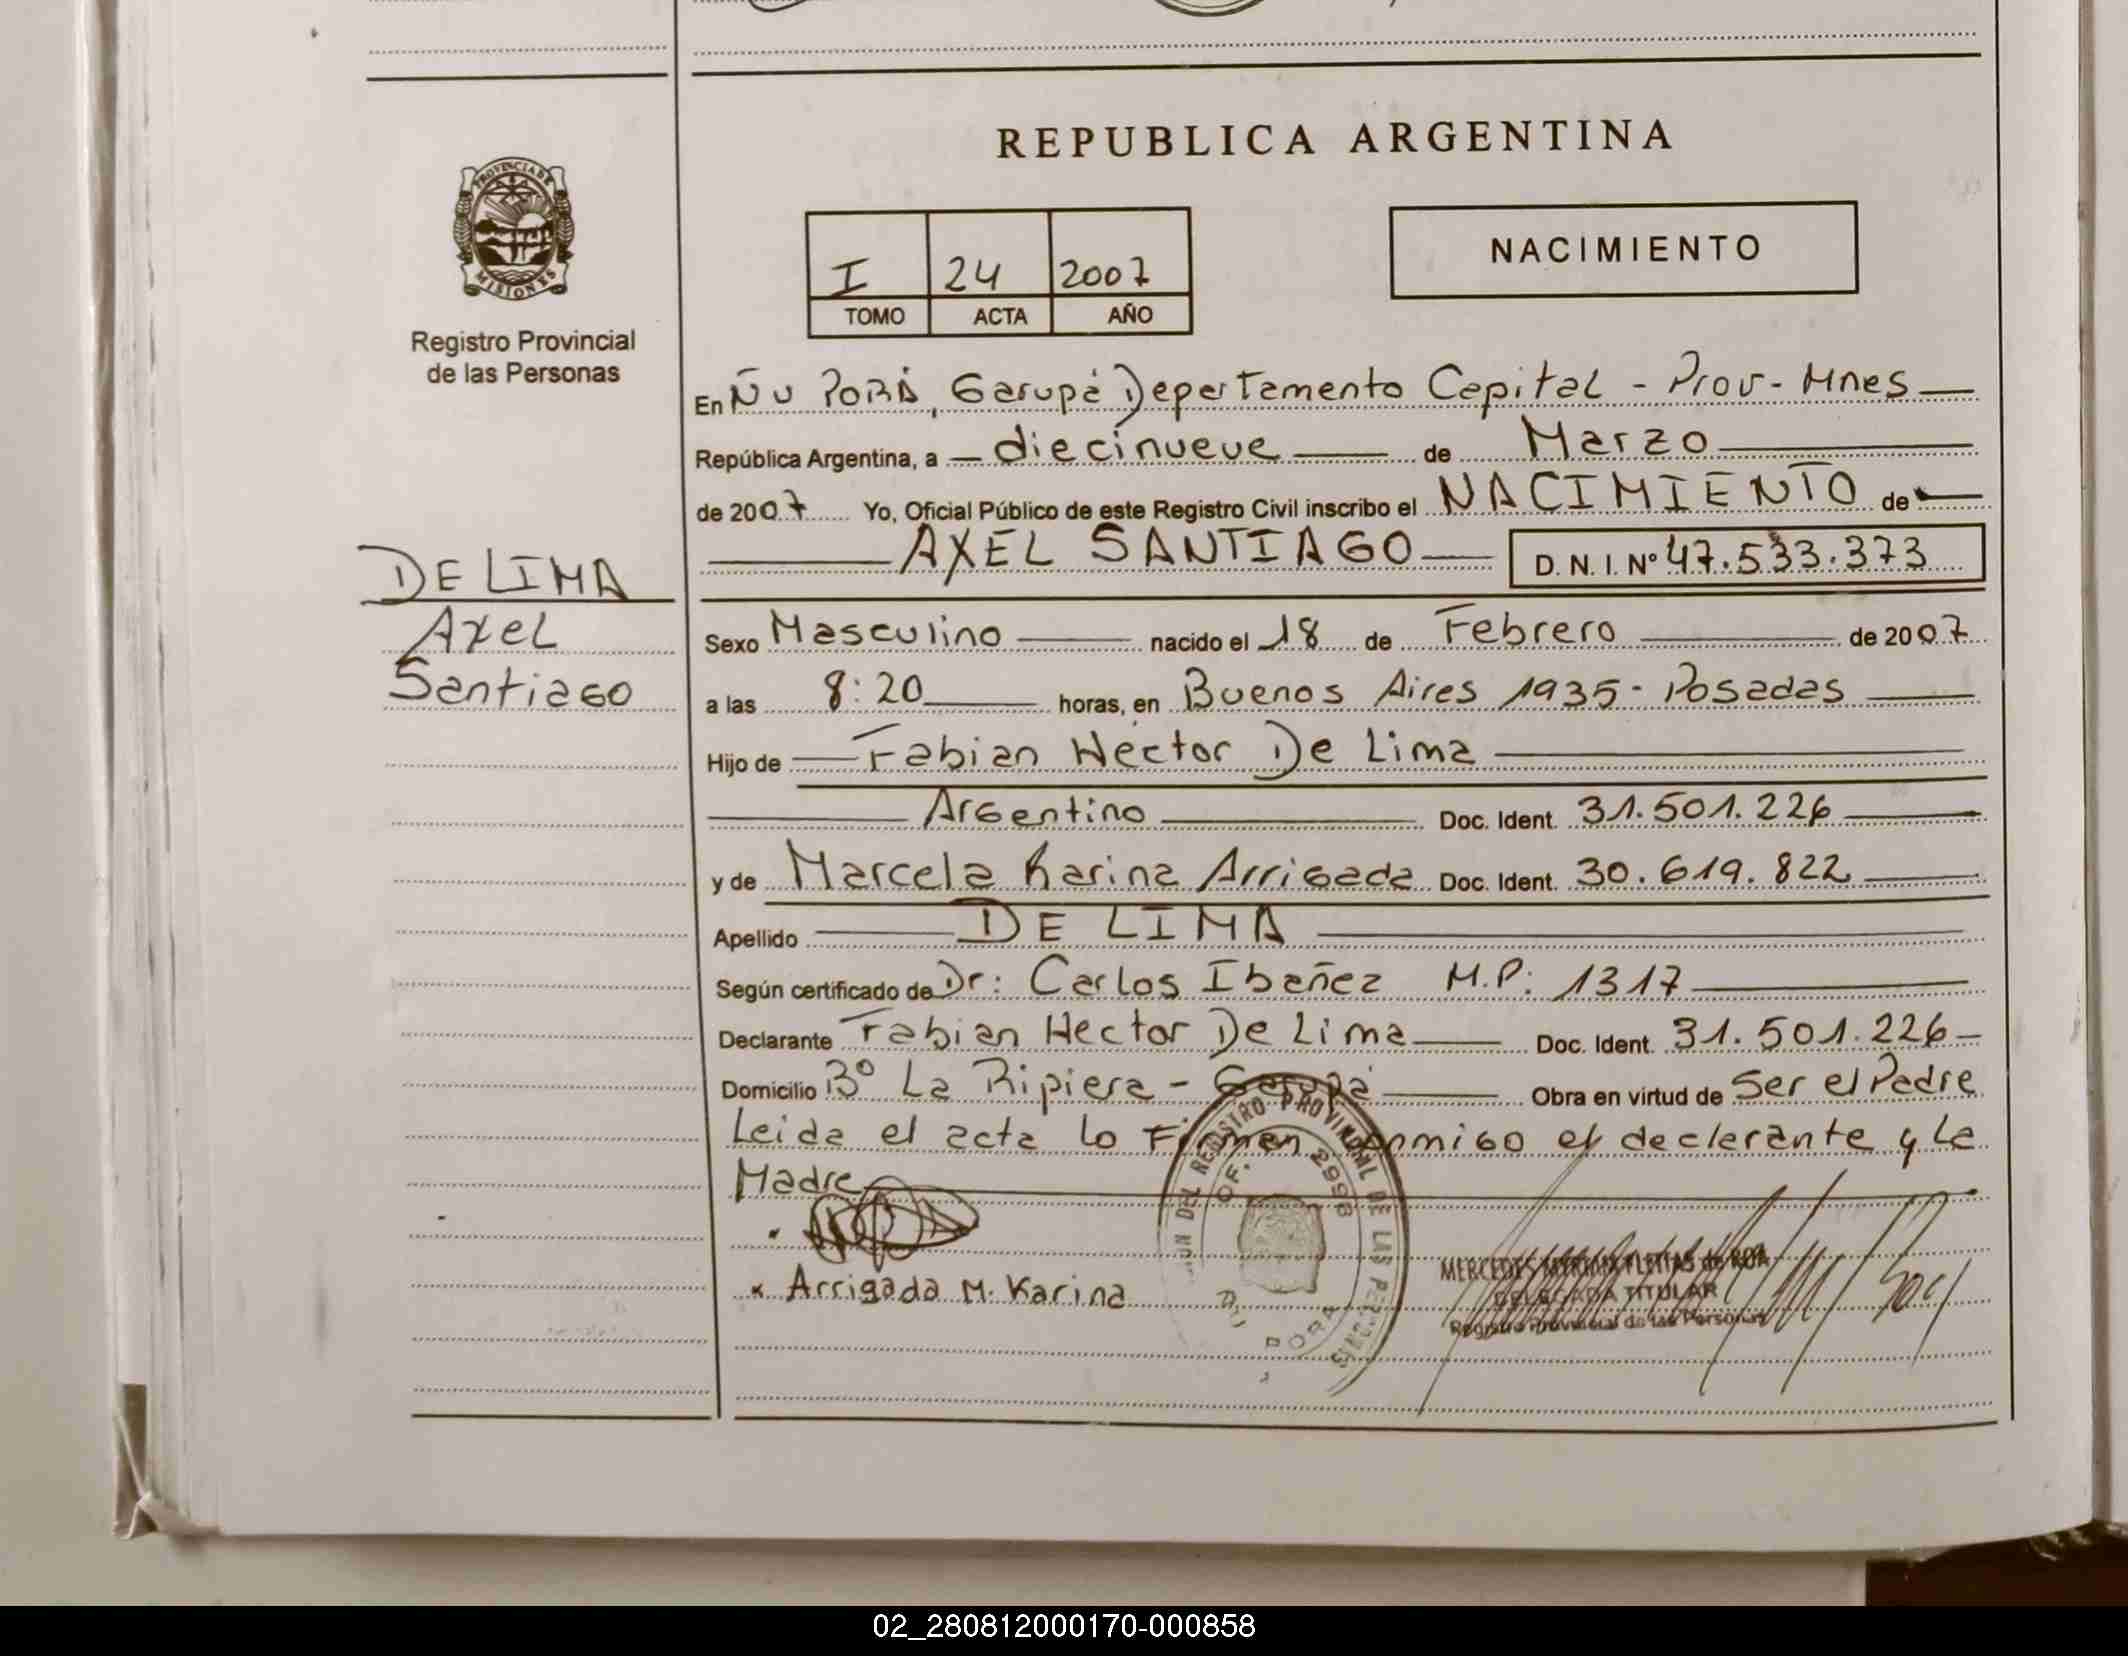 REPUBLICA ARGENTINA
PROVINCIA DE
MISIONES
Registro Provincial
de las Personas
I 24 2007
TOMO ACTA AÑO
NACIMIENTO
En ÑU PORÁ, Garupá Departamento Capital - Prov - Mnes
República Argentina, a diecinueve de Marzo
de 2007 Yo, Oficial Público de este Registro Civil inscribo el NACIMIENTO de
AXEL SANTIAGO D. N. I. Nº 47.533.373
DE LIMA
Axel
Santiago
Sexo Masculino nacido el 18 de Febrero de 2007
a las 8:20 horas, en Buenos Aires 1935 - Posadas
Hijo de Fabian Hector De Lima
Argentino Doc. Ident. 31.501.226
y de Marcela Karina Arrigada Doc. Ident. 30.619.822
Apellido DE LIMA
Según certificado de Dr: Carlos Ibañez M.P: 1317
Declarante Fabian Hector De Lima Doc. Ident. 31.501.226
Domicilio Bº La Ripiera - Garupá Obra en virtud de Ser el Padre
Leida el acta lo Firman conmigo el declarante y la
Madre
x Arrigada M. Karina
DEL REGISTRO PROVINCIAL DE LAS PERSONAS
OF. 2998
ÑU PORA
MERCEDES MYRIAM FLEITAS de ROA
DELEGADA TITULAR
Registro Provincial de las Personas
02_280812000170-000858